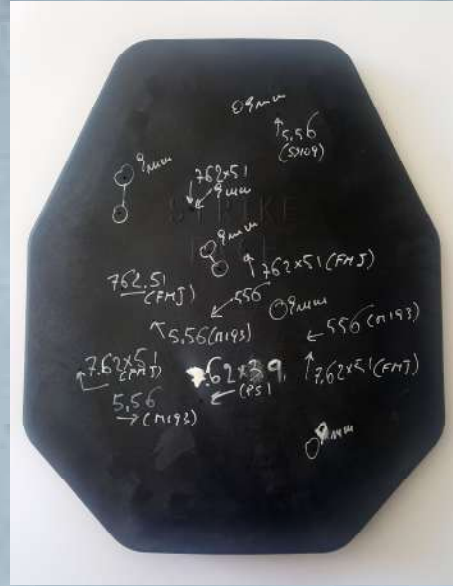 9mm
5,56
(SS109)
9mm
762×51
9mm
STRIKE
FACE
9mm
762×51 (FMJ)
762.51
(FMJ)
556
9mm
5.56 (M193)
556 (M193)
7.62×51
(FMJ)
.62×39
(PS)
7,62×51 (FMJ)
5,56
(M193)
9mm